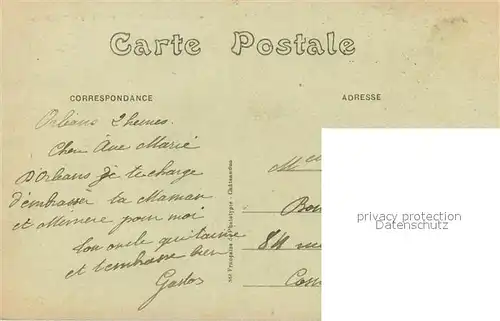 Carte Postale
CORRESPONDANCE
ADRESSE
Orléans 2 heures.
Marie
D'Orléans je te charge
d'embrasser ta Maman
et pour moi
Ton oncle qui t'aime
et t'embrasse bien
Gaston
Sté Française de Phototypie - Châteaudun
M
84
privacy protection
Datenschutz